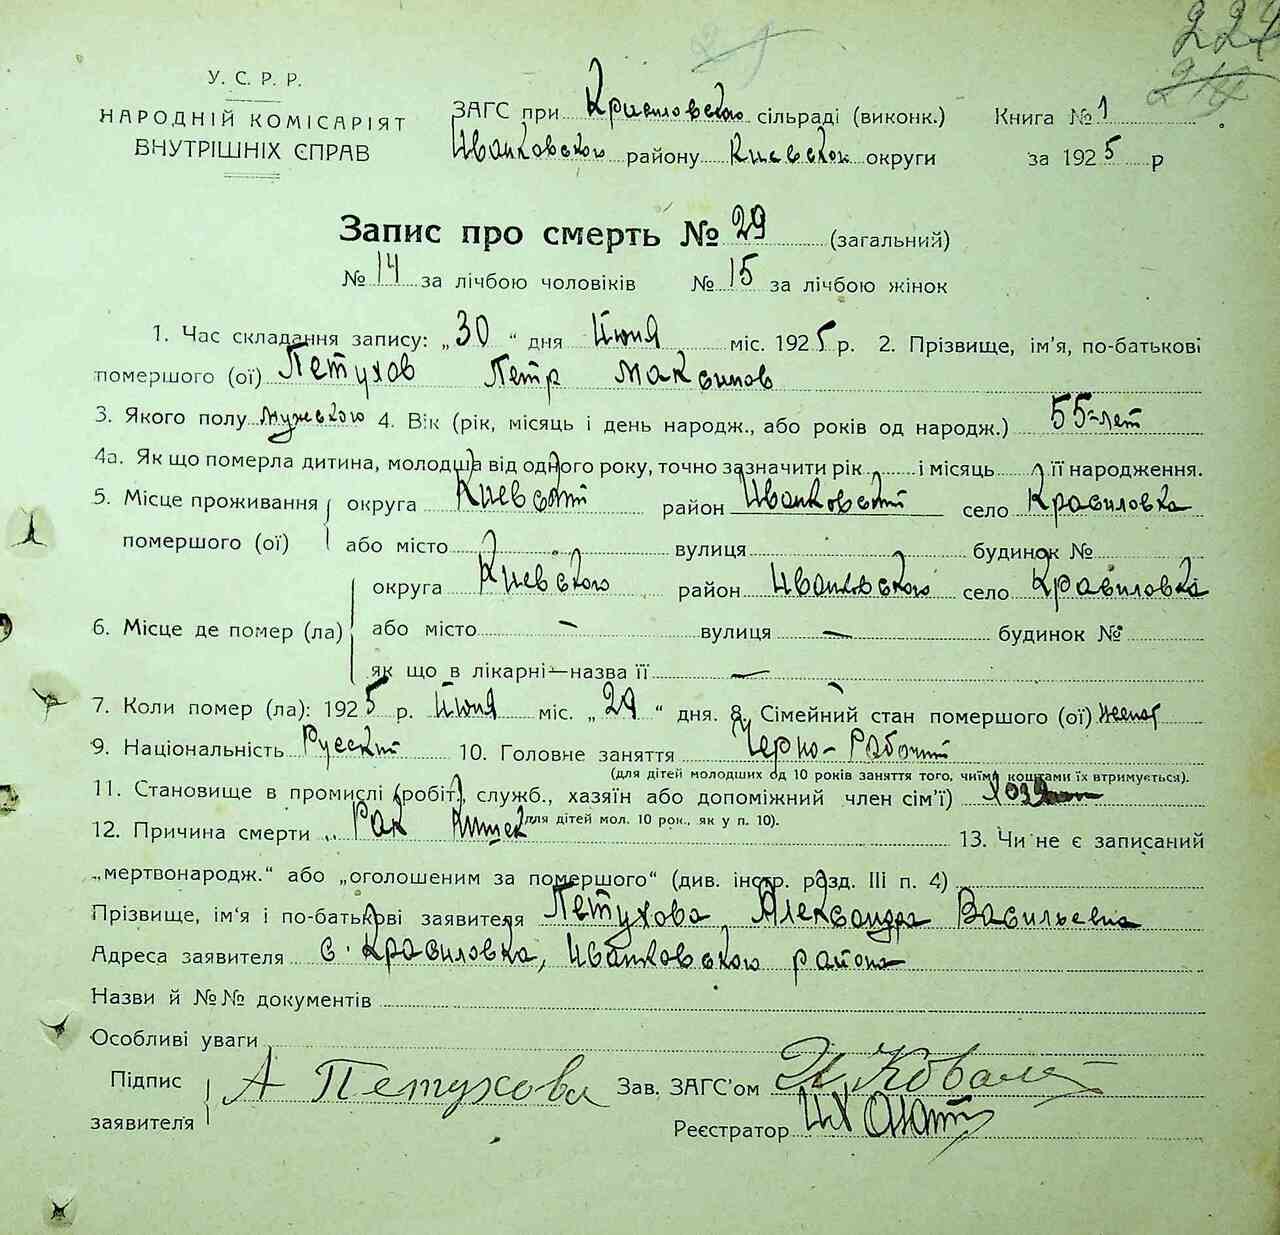 224
214
29
У. С. Р. Р.
НАРОДНІЙ КОМІСАРІЯТ
ВНУТРІШНІХ СПРАВ
ЗАГС при Красиловского сільраді (виконк.)
Иванковского району Киевской округи
Книга № 1
за 1925 р
Запис про смерть № 29 (загальний)
№ 14 за лічбою чоловіків № 15 за лічбою жінок
1. Час складання запису: „30“ дня Июня міс. 1925 р. 2. Прізвище, ім'я, по-батькові
помершого (ої) Петухов Петр Максимов
3. Якого полу мужского 4. Вік (рік, місяць і день народж., або років од народж.) 55-лет
4а. Як що померла дитина, молодша від одного року, точно зазначити рік і місяць її народження.
5. Місце проживання помершого (ої) округа Киевской район Иванковской село Красиловка
або місто вулиця будинок №
6. Місце де помер (ла) округа Киевского район Иванковского село Красиловка
або місто — вулиця — будинок №
як що в лікарні—назва її —
7. Коли помер (ла): 1925 р. Июня міс. „29“ дня. 8. Сімейний стан помершого (ої) женат
9. Національність Русский 10. Головне заняття Черно-Рабочий
(для дітей молодших од 10 років заняття того, чиїми коштами їх втримується).
11. Становище в промислі (робіт., служб., хазяїн або допоміжний член сім'ї)
для дітей мол. 10 рок., як у п. 10).
12. Причина смерти Рак 13. Чи не є записаний
„мертвонародж.“ або „оголошеним за помершого“ (див. інстр. розд. III п. 4)
Прізвище, ім'я і по-батькові заявителя Петухова Александра Васильевна
Адреса заявителя с. Красиловка, Иванковского района
Назви й №№ документів
Особливі уваги
Підпис заявителя А Петухова Зав. ЗАГС'ом Коваль
Реєстратор